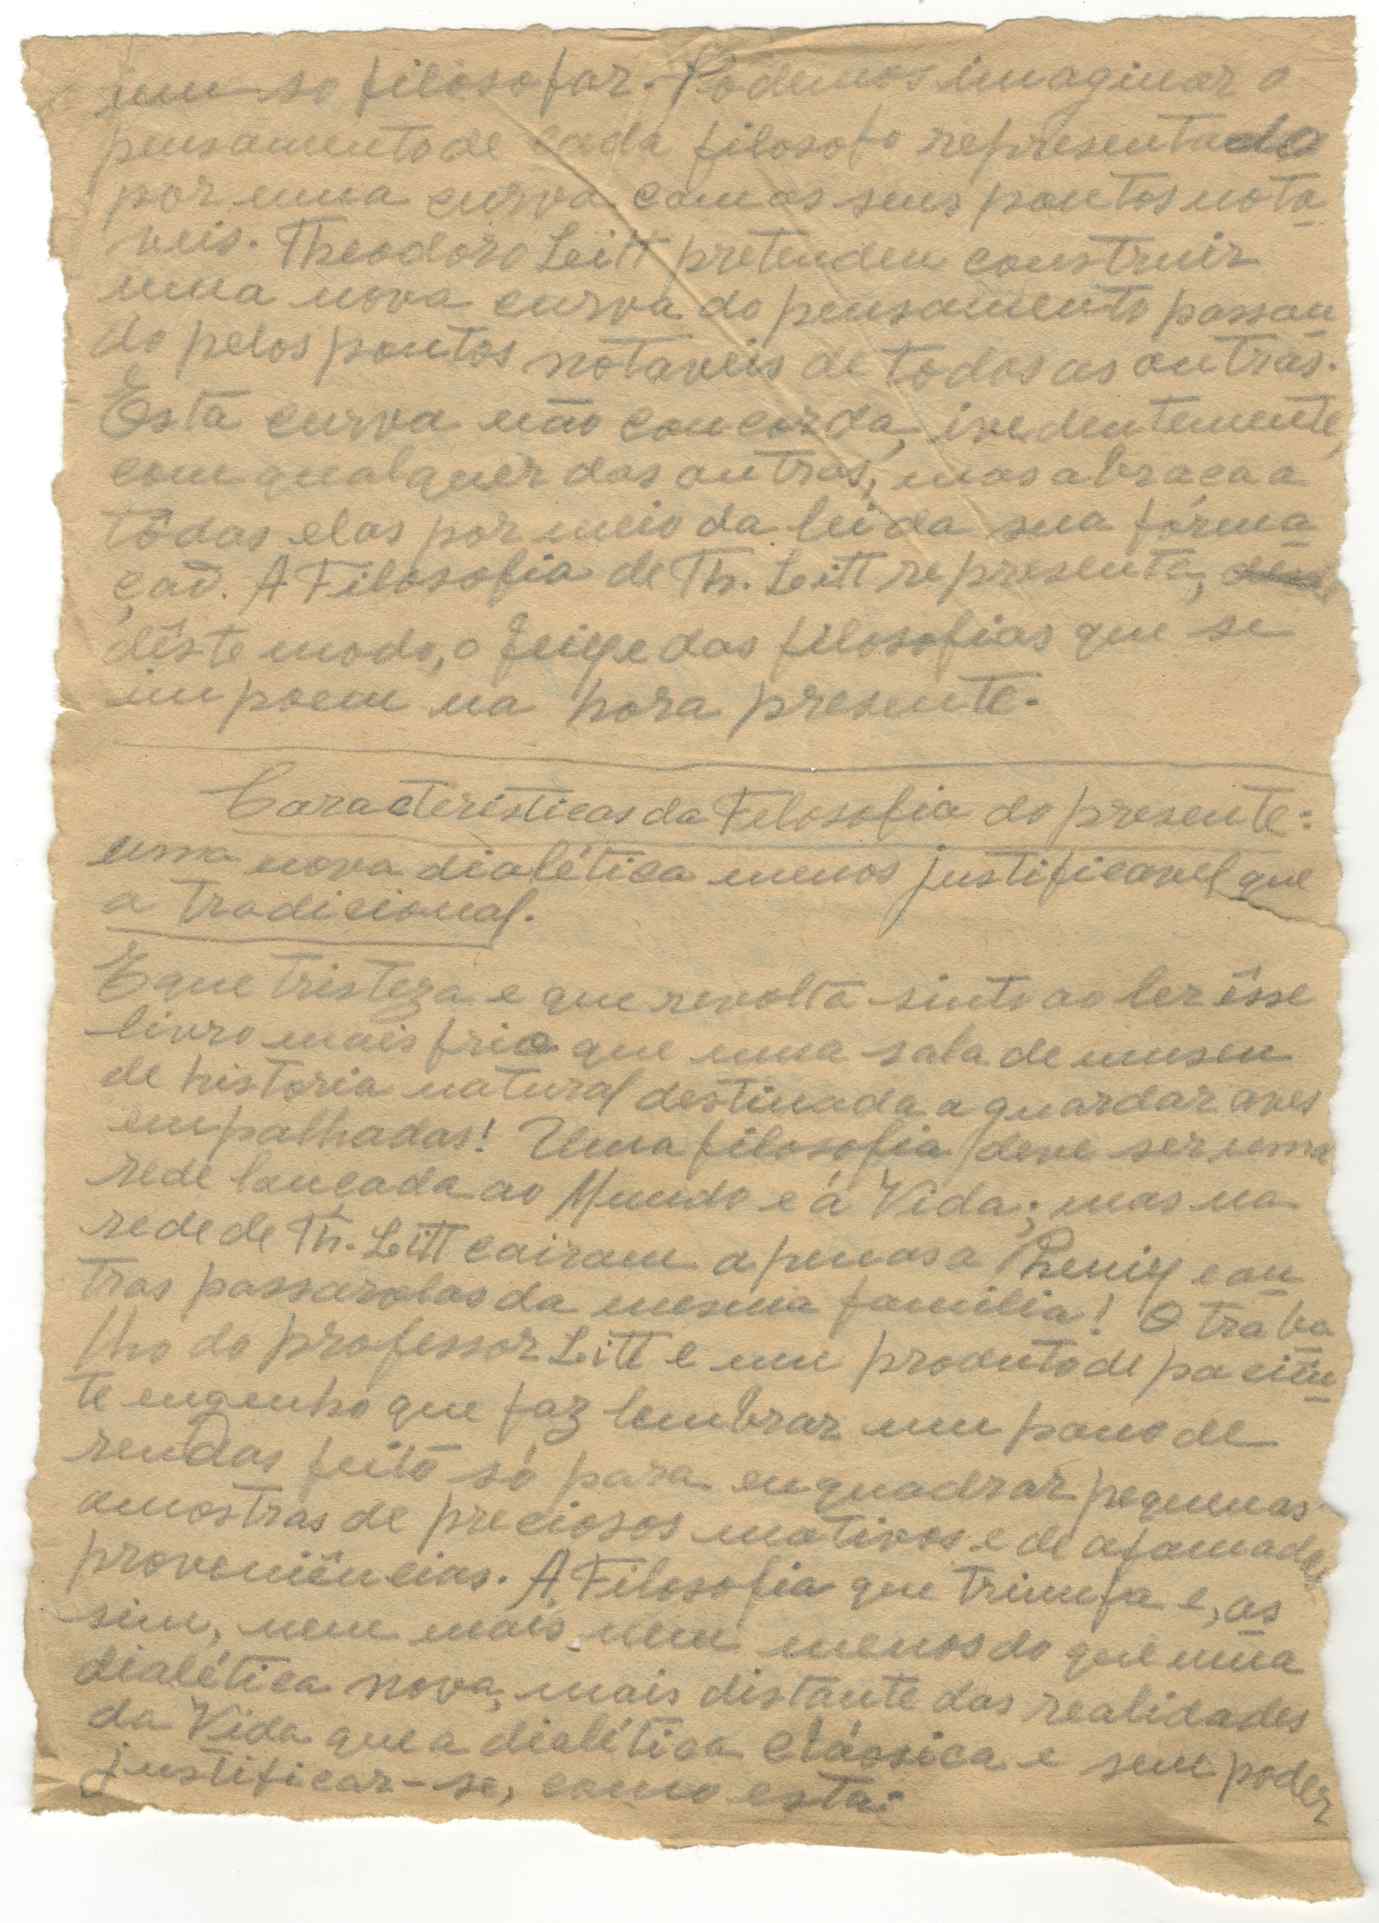 num so filosofar. Podemos imaginar o
pensamento de cada filosofo representado
por uma curva com os seus pontos nota
veis. Theodoro Leitt pretendeu construir
uma nova curva do pensamento passan
do pelos pontos notaveis de todos as outras.
Esta curva não concorda, ividentemente,
com qualquer das outras, mas abraça a
tôdas elas por meio da lei da sua fórma
ção. A Filosofia de Th. Litt representa,
dêste modo, o feixe das filosofias que se
impoem na hora presente.
Caracteristicas da Filosofia do presente:
uma nova dialética menos justificavel que
a tradicional.
E que tristeza e que revolta sinto ao ler êsse
livro mais frio que uma sala de museu
de historia natural destinada a guardar aves
empalhadas! Uma filosofia deve ser uma
rede lançada ao Mundo e á Vida; mas na
rede de Th. Litt cairam apenas a Phenix e ou
tras passarolas da mesma familia! O traba
lho do professor Litt e um produto de paciên
te engenho que faz lembrar um pano de
rendas feito só para enquadrar pequenas
amostras de preciosos motivos e de afamadas
proveniências. A Filosofia que triunfa e, as
sim, nem mais nem menos do que uma
dialética nova, mais distante das realidades
da Vida que a dialética clássica e sem poder
justificar-se, como esta.